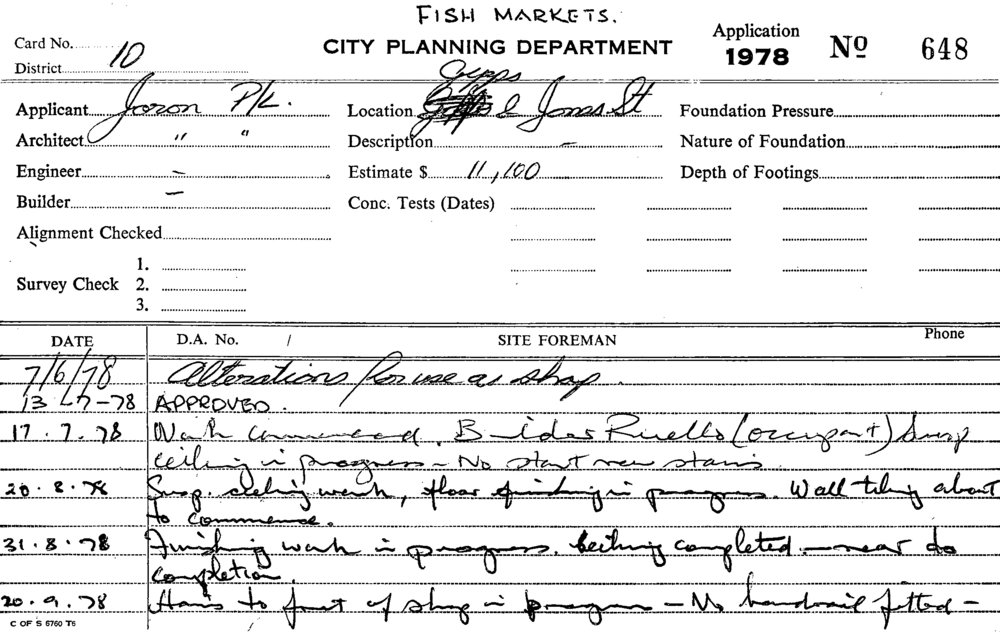 FISH MARKETS.
Card No. 10
District
CITY PLANNING DEPARTMENT
Application
1978
No 648
Applicant Joron P/L.
Location Gipps & Jones St
Foundation Pressure
Architect " "
Description —
Nature of Foundation
Engineer —
Estimate $ 11,100
Depth of Footings
Builder —
Conc. Tests (Dates)
Alignment Checked
Survey Check
1.
2.
3.
DATE D.A. No. / SITE FOREMAN Phone
7/6/78 Alterations for use as shop.
13-7-78 APPROVED.
17.7.78 Work commenced. Builder (occupant) Susp
ceiling in progress – No start new stairs
20.8.78 Susp. ceiling work, floor finishing in progress. Wall tiling about
to commence.
31.8.78 Finishing work in progress. Ceiling completed – near to
completion.
20.9.78 to front of shop in progress – No handrail fitted –
C OF S 6760 T6